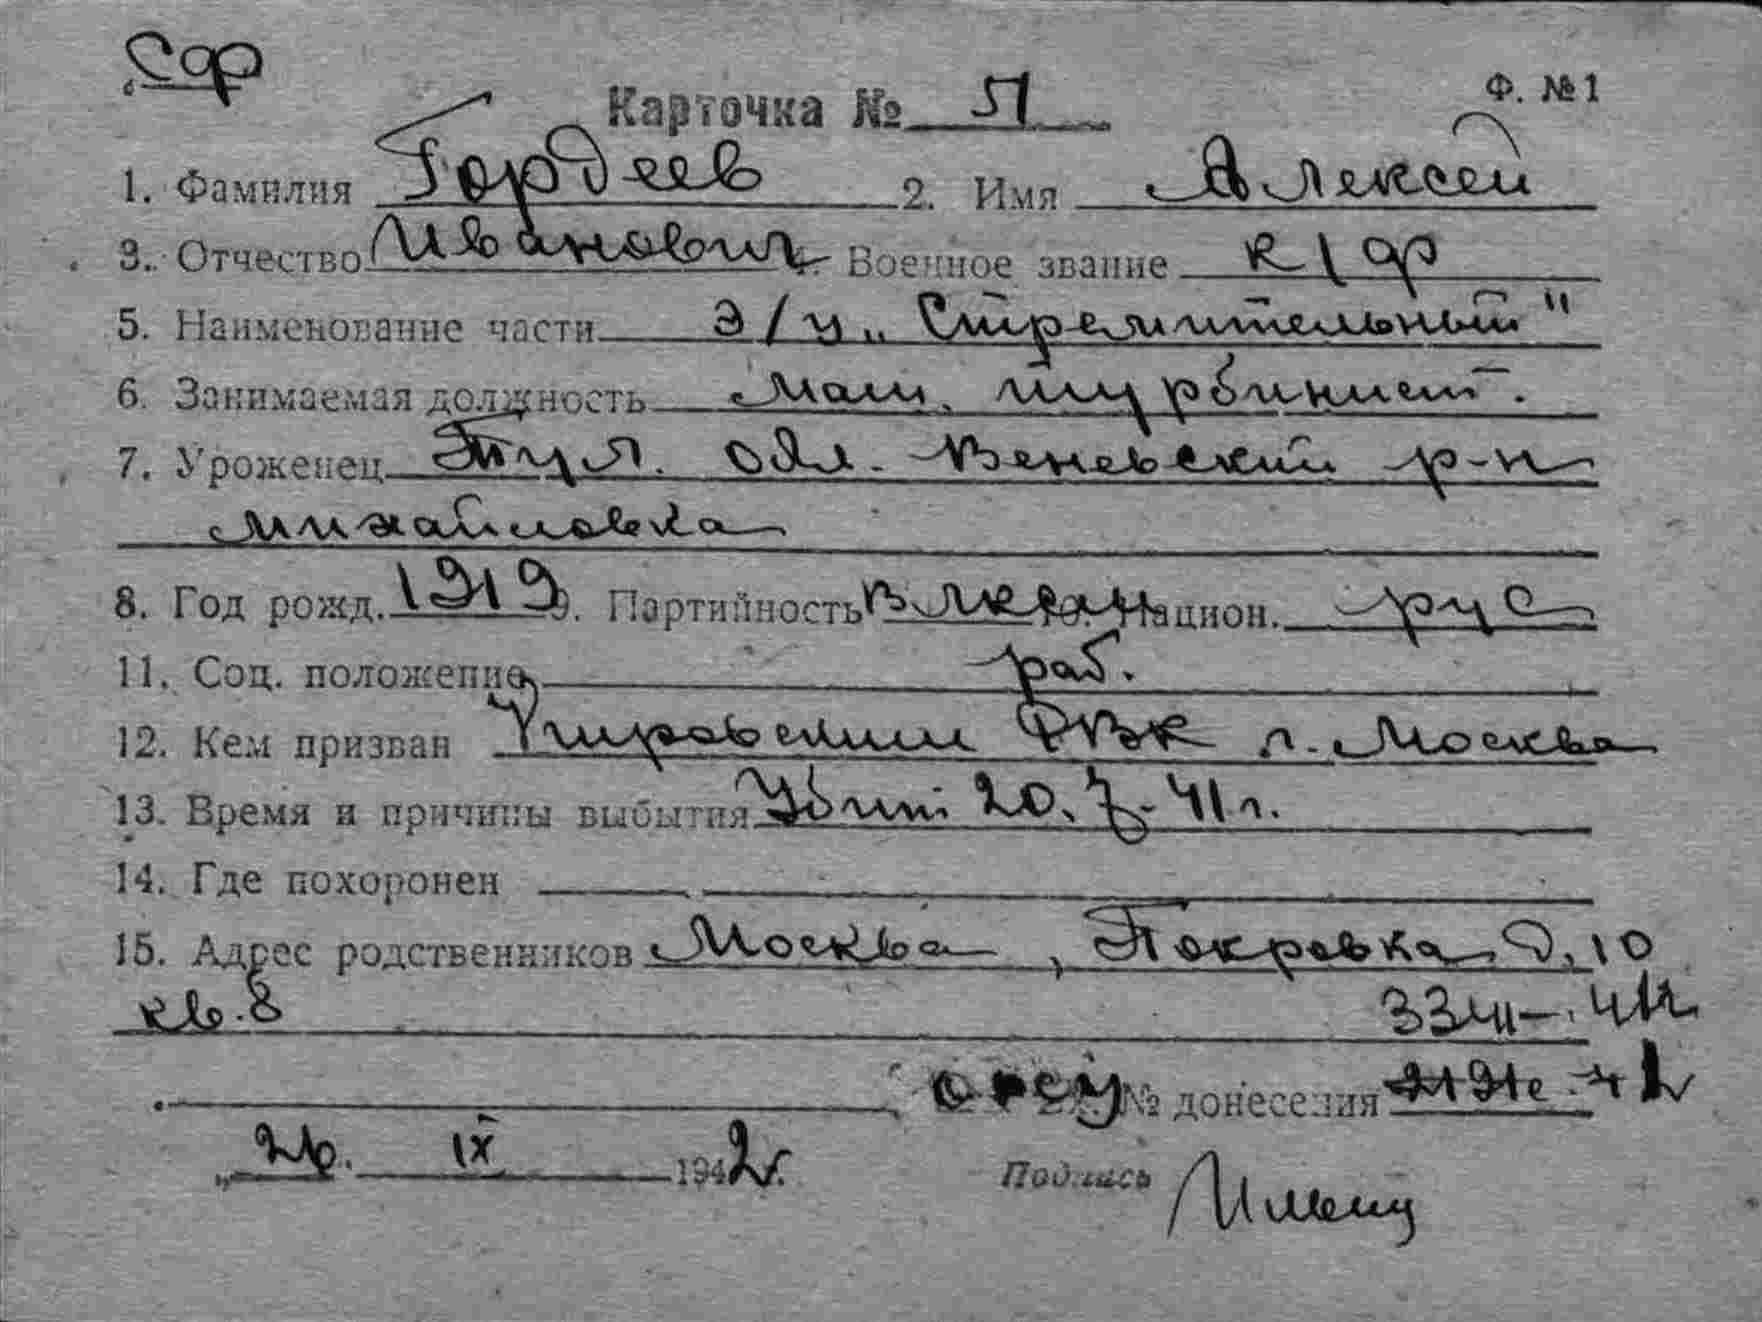 Сф
Карточка № 51 Ф. №1
1. Фамилия Гордеев 2. Имя Алексей
3. Отчество Иванович 4. Военное звание к/ф
5. Наименование части Э/м „Стремительный"
6. Занимаемая должность Маш. турбинист.
7. Уроженец Тул. обл. Веневский р-н
Михайловка
8. Год рожд. 1919 9. Партийность ВЛКСМ 10. Национ. рус
11. Соц. положение раб.
12. Кем призван Кировским РВК г. Москва
13. Время и причины выбытия Убит 20.7.41 г.
14. Где похоронен
15. Адрес родственников Москва, Покровка д. 10
кв. 8
№ донесения
„26. IX 1942г.
Подпись